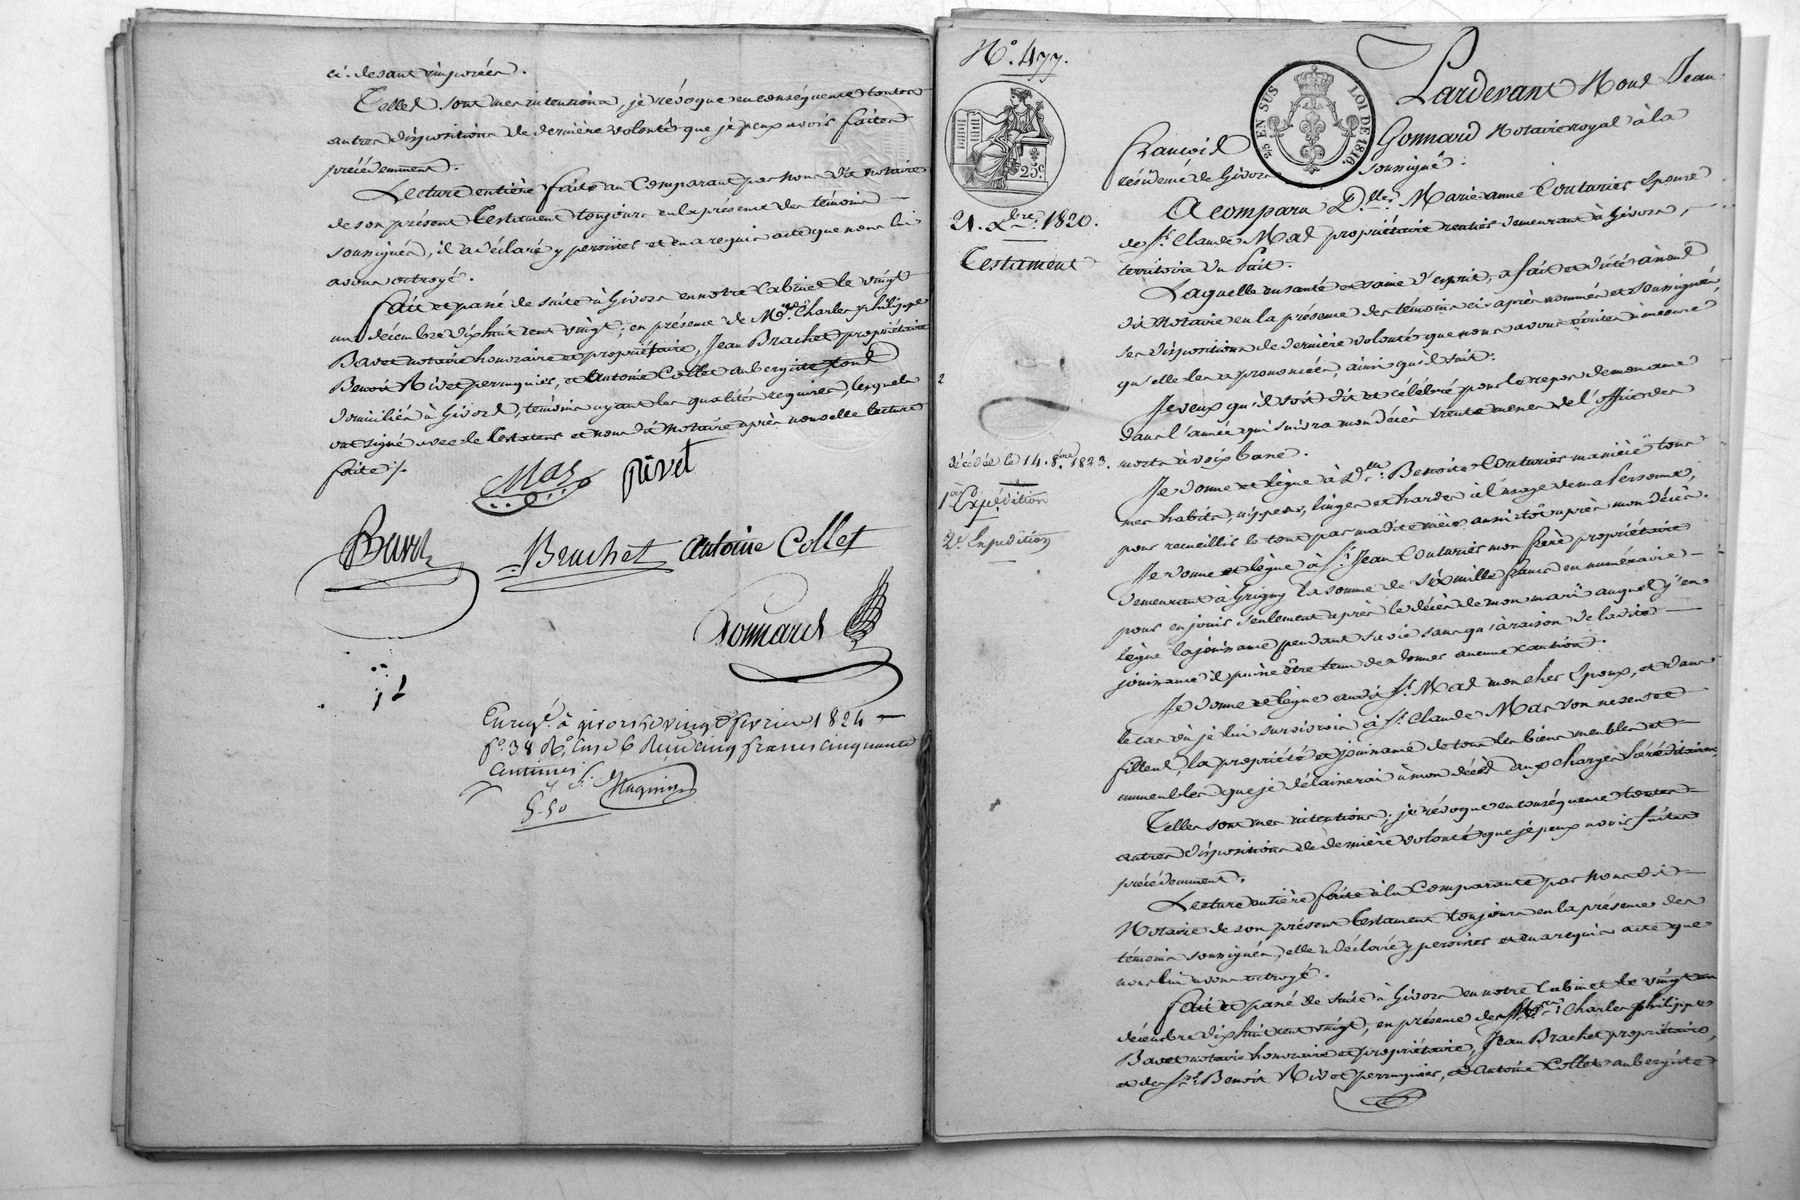 ci-devant imposées.
Telles sont mes intentions, je révoque en conséquence toutes
autres dispositions de dernière volonté que je peux avoir faites
précédemment.
Lecture entière faite au Comparant par nous dit notaire
de son présent testament toujours en la présence des témoins
soussignés, il a déclaré y persister et en a requis acte que nous lui
avons octroyé.
fait et passé de suite à Givors en notre Cabinet le vingt
un décembre dix huit cent vingt; en présence de Mrs Charles philippe
Bavet notaire honoraire et propriétaire, Jean Brachet propriétaire
Benoit Rivet perruquier, et Antoine Collet aubergiste tous
domiciliés à Givors, témoins ayant les qualités requises, lesquels
ont signé avec le testateur et nous dit Notaire après nouvelle lecture
faite ./.
Mas Rivet
Bavet Brachet Antoine Collet
Gonnard
Enregé à givors le vingt fevrier 1824
fo 38 Ro Case 6 Reçu Cinq francs Cinquante
Centimes
5-50
No. 477.
25c
21. Xbre. 1820.
Testament
décédée le 14. 8bre 1823.
1ere Expédition
2e Expédition
EN SUS
LOI DE 1816.
Pardevant Nous Jean
François Gonnard Notaire royal à la
résidence de Givors soussigné.
A comparu Dlle. Marie-anne Couturier Epouse
de Sr. Claude Mas propriétaire rentier demeurant à Givors,
territoire du fait.
Laquelle en santé et saine d'esprit, a fait et dicté à nous
dit notaire en la présence des témoins ci-après nommés et soussignés,
ses dispositions de dernière volonté que nous avons écrites à mesure
qu'elle les a prononcées, ainsi qu'il suit.
Je veux qu'il soit dit et célébré pour le repos de mon ame
dans l'année qui suivra mon décès trente messes de l'office des
morts à voix basse.
Je donne et lègue à Dlle. Benoite Couturier ma nièce tous
mes habits, nippes, linges et hardes à l'usage de ma personne,
pour recueillir le tout par madite nièce aussitôt après mon décès.
Je donne et lègue à Sr. Jean Couturier mon frère propriétaire
demeurant à Grigny la somme de six mille francs en numéraire
pour en jouir seulement après le décès de mon mari auquel j'en
lègue la jouissance pendant sa vie sans qu'à raison de ladite
jouissance il puisse être tenu de donner aucune caution.
Je donne et lègue audit Sr. Mas mon cher Epoux, et dans
le cas où je lui survivrois à Sr. Claude Mas son neveu et
filleul, la propriété et jouissance de tous les biens meubles et
immeubles que je délaisserai à mon décès aux charges héréditaires.
Telles sont mes intentions; je révoque en conséquence toutes
autres dispositions de dernière volonté que je peux avoir faites
précédemment.
Lecture entière faite à la Comparante par Nous dit
Notaire de son présent testament toujours en la présence des
témoins soussignés, elle a déclaré y persister et en a requis acte que
nous lui avons octroyé.
fait et passé de suite à Givors en notre Cabinet le vingt un
décembre dix huit cent vingt; en présence de Charles philippe
Bavet notaire honoraire et propriétaire, Jean Brachet propriétaire,
et de Benoit Rivet perruquier, et Antoine Collet aubergiste